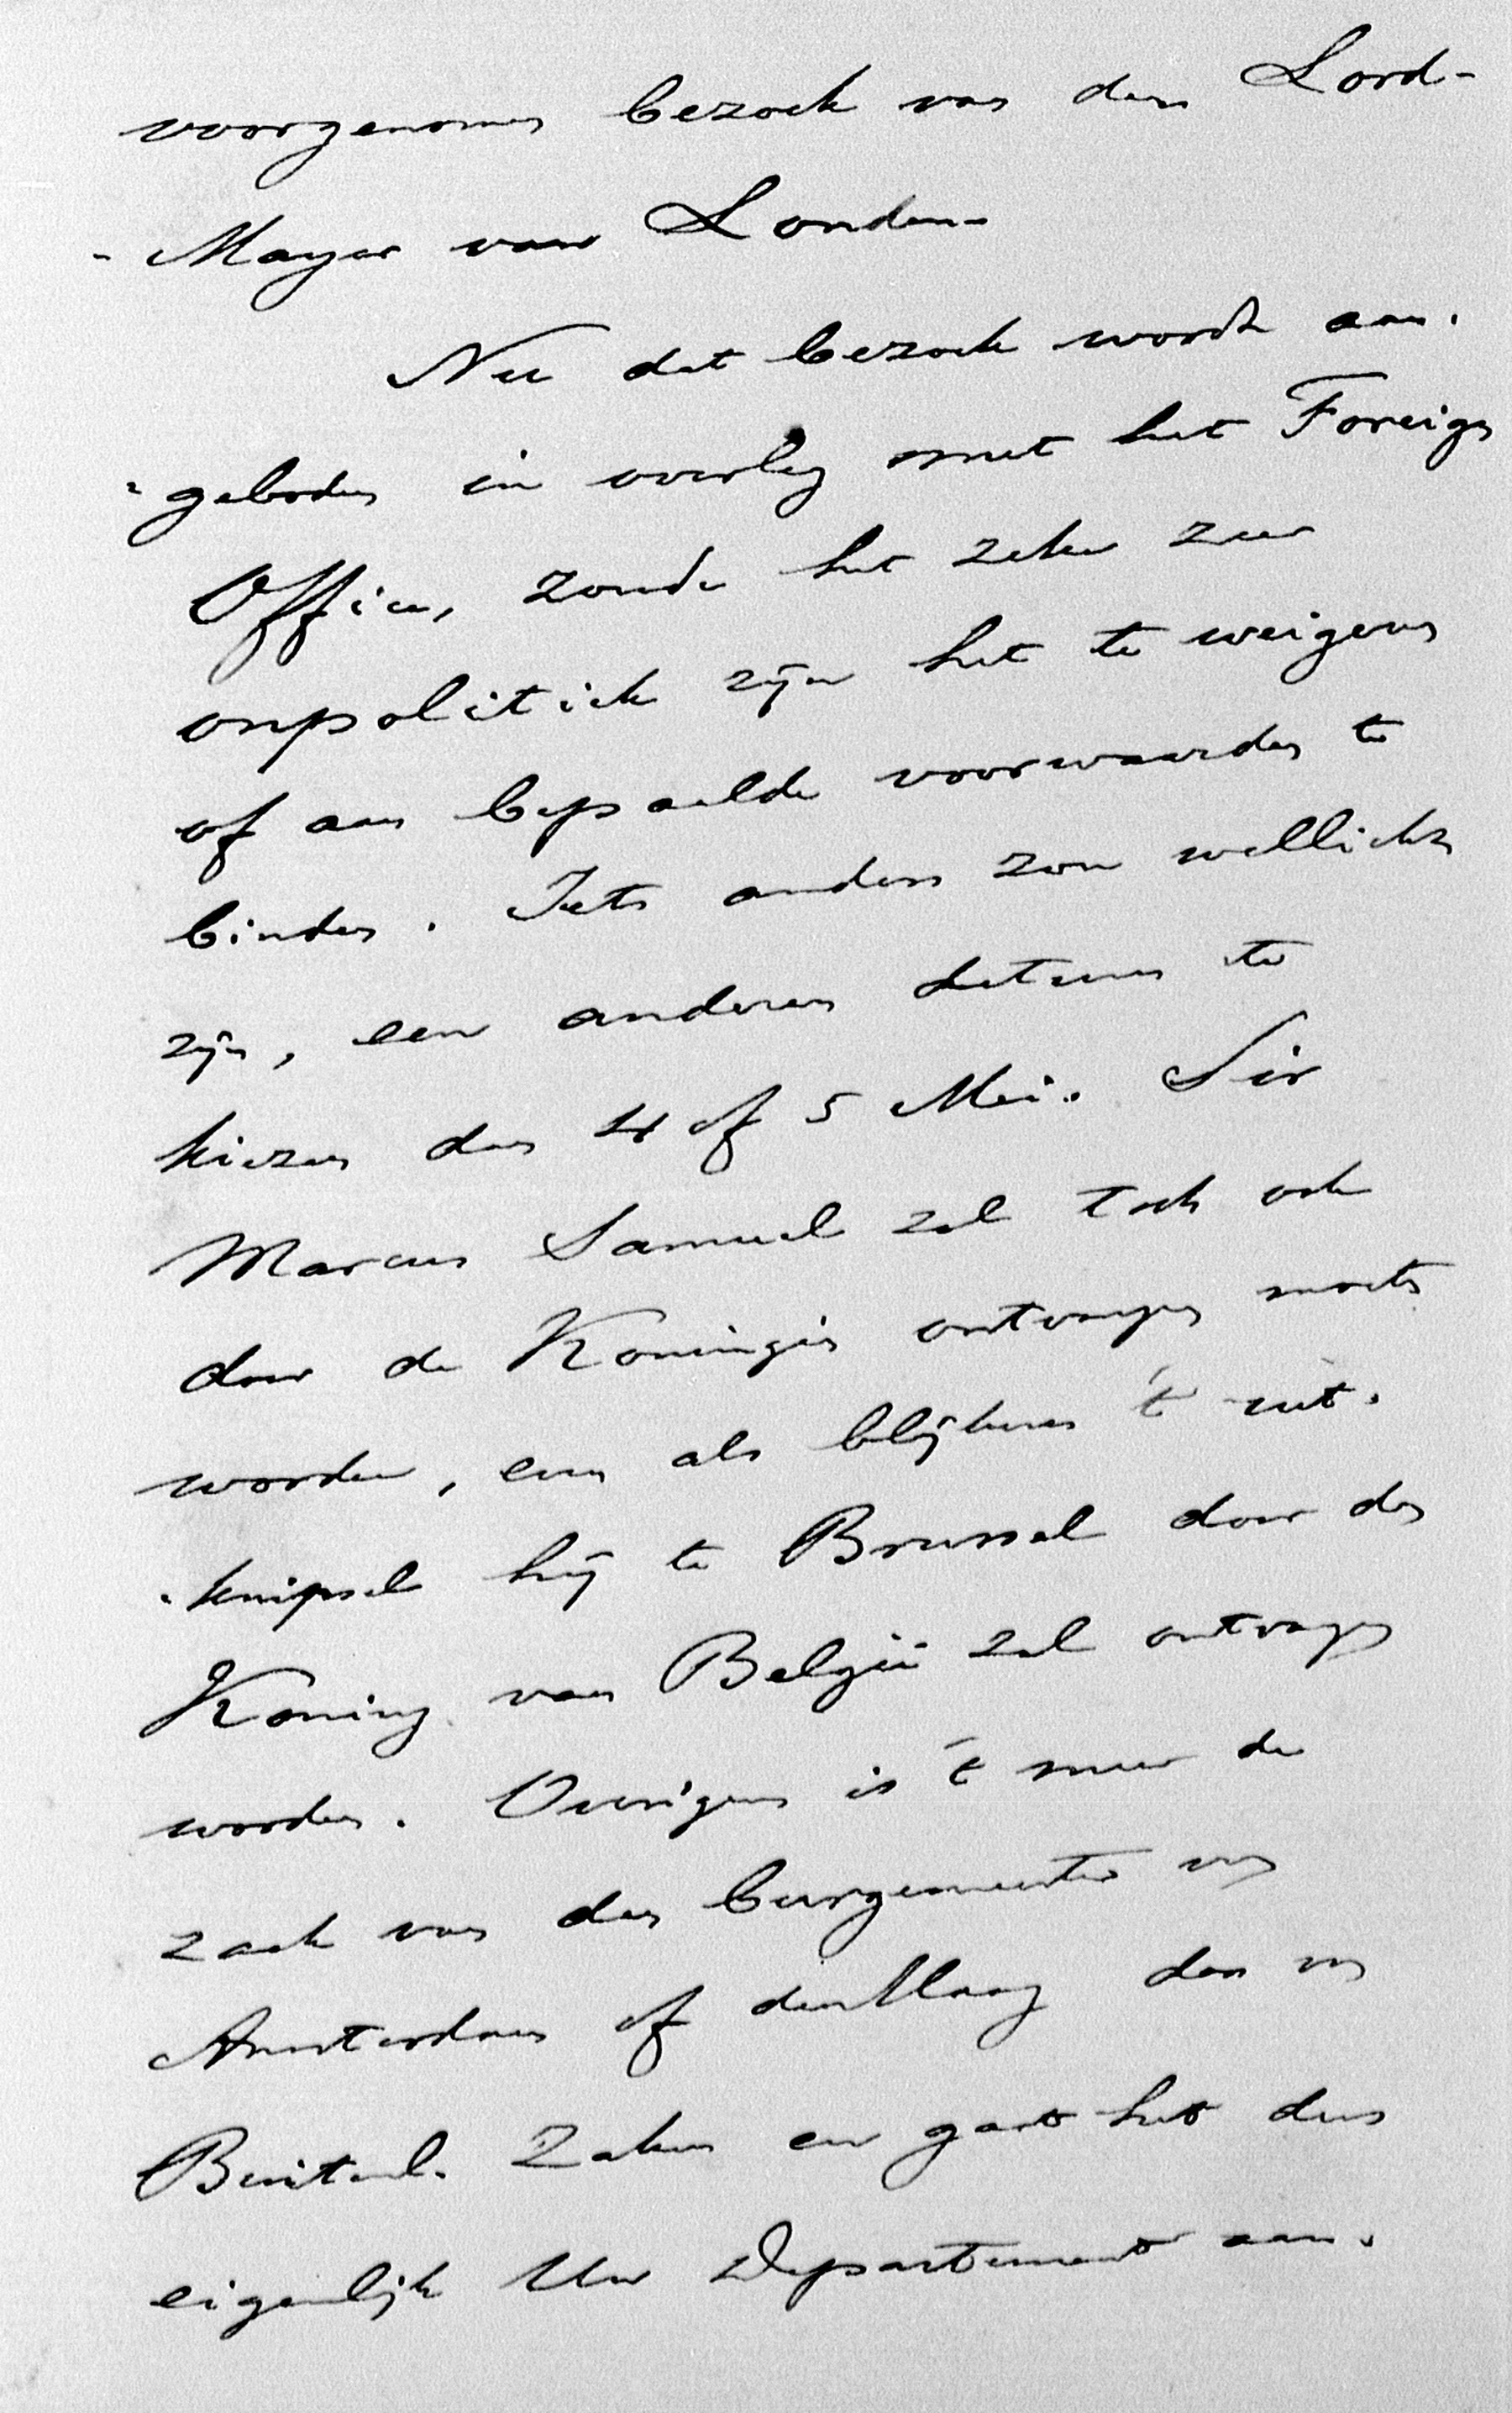 voorgenomen bezoek van den Lord-
-Mayor van Londen.
Nu dat bezoek wordt aan-
-geboden in overleg met het Foreign
Office, zoude het zeker zeer
onpolitiek zijn het te weigeren
of aan bepaalde voorwaarden te
binden. Iets anders zou wellicht
zijn, een anderen datum te
kiezen dan 4 of 5 Mei. Sir
Marcus Samuel zal toch ook
door de Koningin ontvangen moeten
worden, even als blijkens 't uit-
-knipsel hij te Brussel door den
Koning van België zal ontvangen
worden. Overigens is 't meer de
zaak van den burgemeester van
Amsterdam of den Haag dan van
Buitenl. Zaken en gaat het dus
eigenlijk Uw Departement aan.